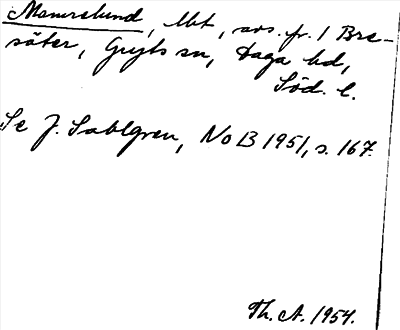 Mannslund, lht, avs. fr. 1 Bre-
säter, Gryts sn, Daga hd,
Söd. l.
Se J. Sahlgren, NoB 1951, s. 167.
Th. A. 1954.